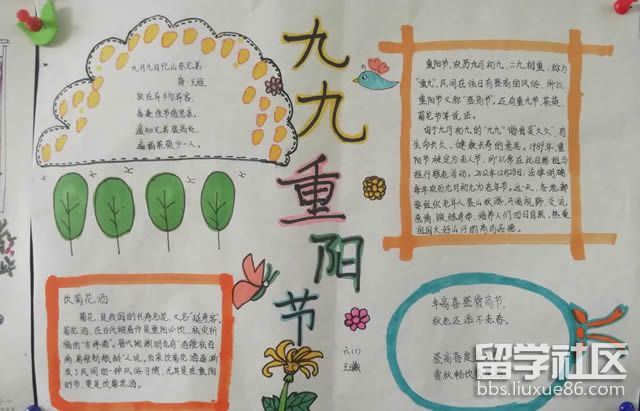 九月九日忆山东兄弟
唐·王维
独在异乡为异客,
每逢佳节倍思亲。
遥知兄弟登高处,
遍插茱萸少一人。
九九重阳节
六(1)
重阳节,农历九月初九,二九相重,称为
"重九",民间在该日有登高的风俗,所以
重阳节又称"登高节"。还有重九节、茱萸、
菊花节等说法。
由于九月初九的"九九"谐音是"久久",有
生命长久、健康长寿的意思。1989年,重
阳节被定为老人节,所以常在此日祭祖与
推行敬老活动。2012年12月28日,法律明确
每年农历九月初九为老年节。这一天,各地都
要组织老年人登山秋游,开阔视野,交流
感情,锻炼身体,培养人们回归自然,热爱
祖国大好山河的高尚品德。
饮菊花酒
菊花,是我国的长寿名花,又名"延寿客"。
菊花酒,在古代被看作是重阳必饮、祛灾祈
福的"吉祥酒"。
了民间的一种风俗习惯,尤其是在重阳
时节,更是饮菊花酒。
年高喜登赏高节,
秋色还添不老春。
留学社区
bbs.liuxue86.com